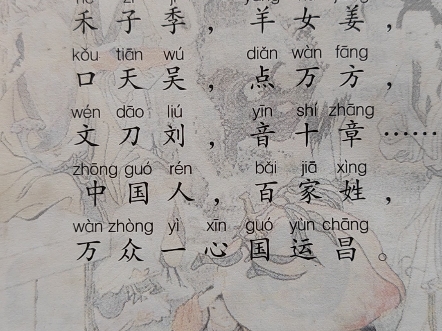 禾子季，羊女姜，
kǒu tiān wú diǎn wàn fāng
口天吴，点万方，
wén dāo liú yīn shí zhāng
文刀刘，音十章……
zhōng guó rén bǎi jiā xìng
中国人，百家姓，
wàn zhòng yì xīn guó yùn chāng
万众一心国运昌。